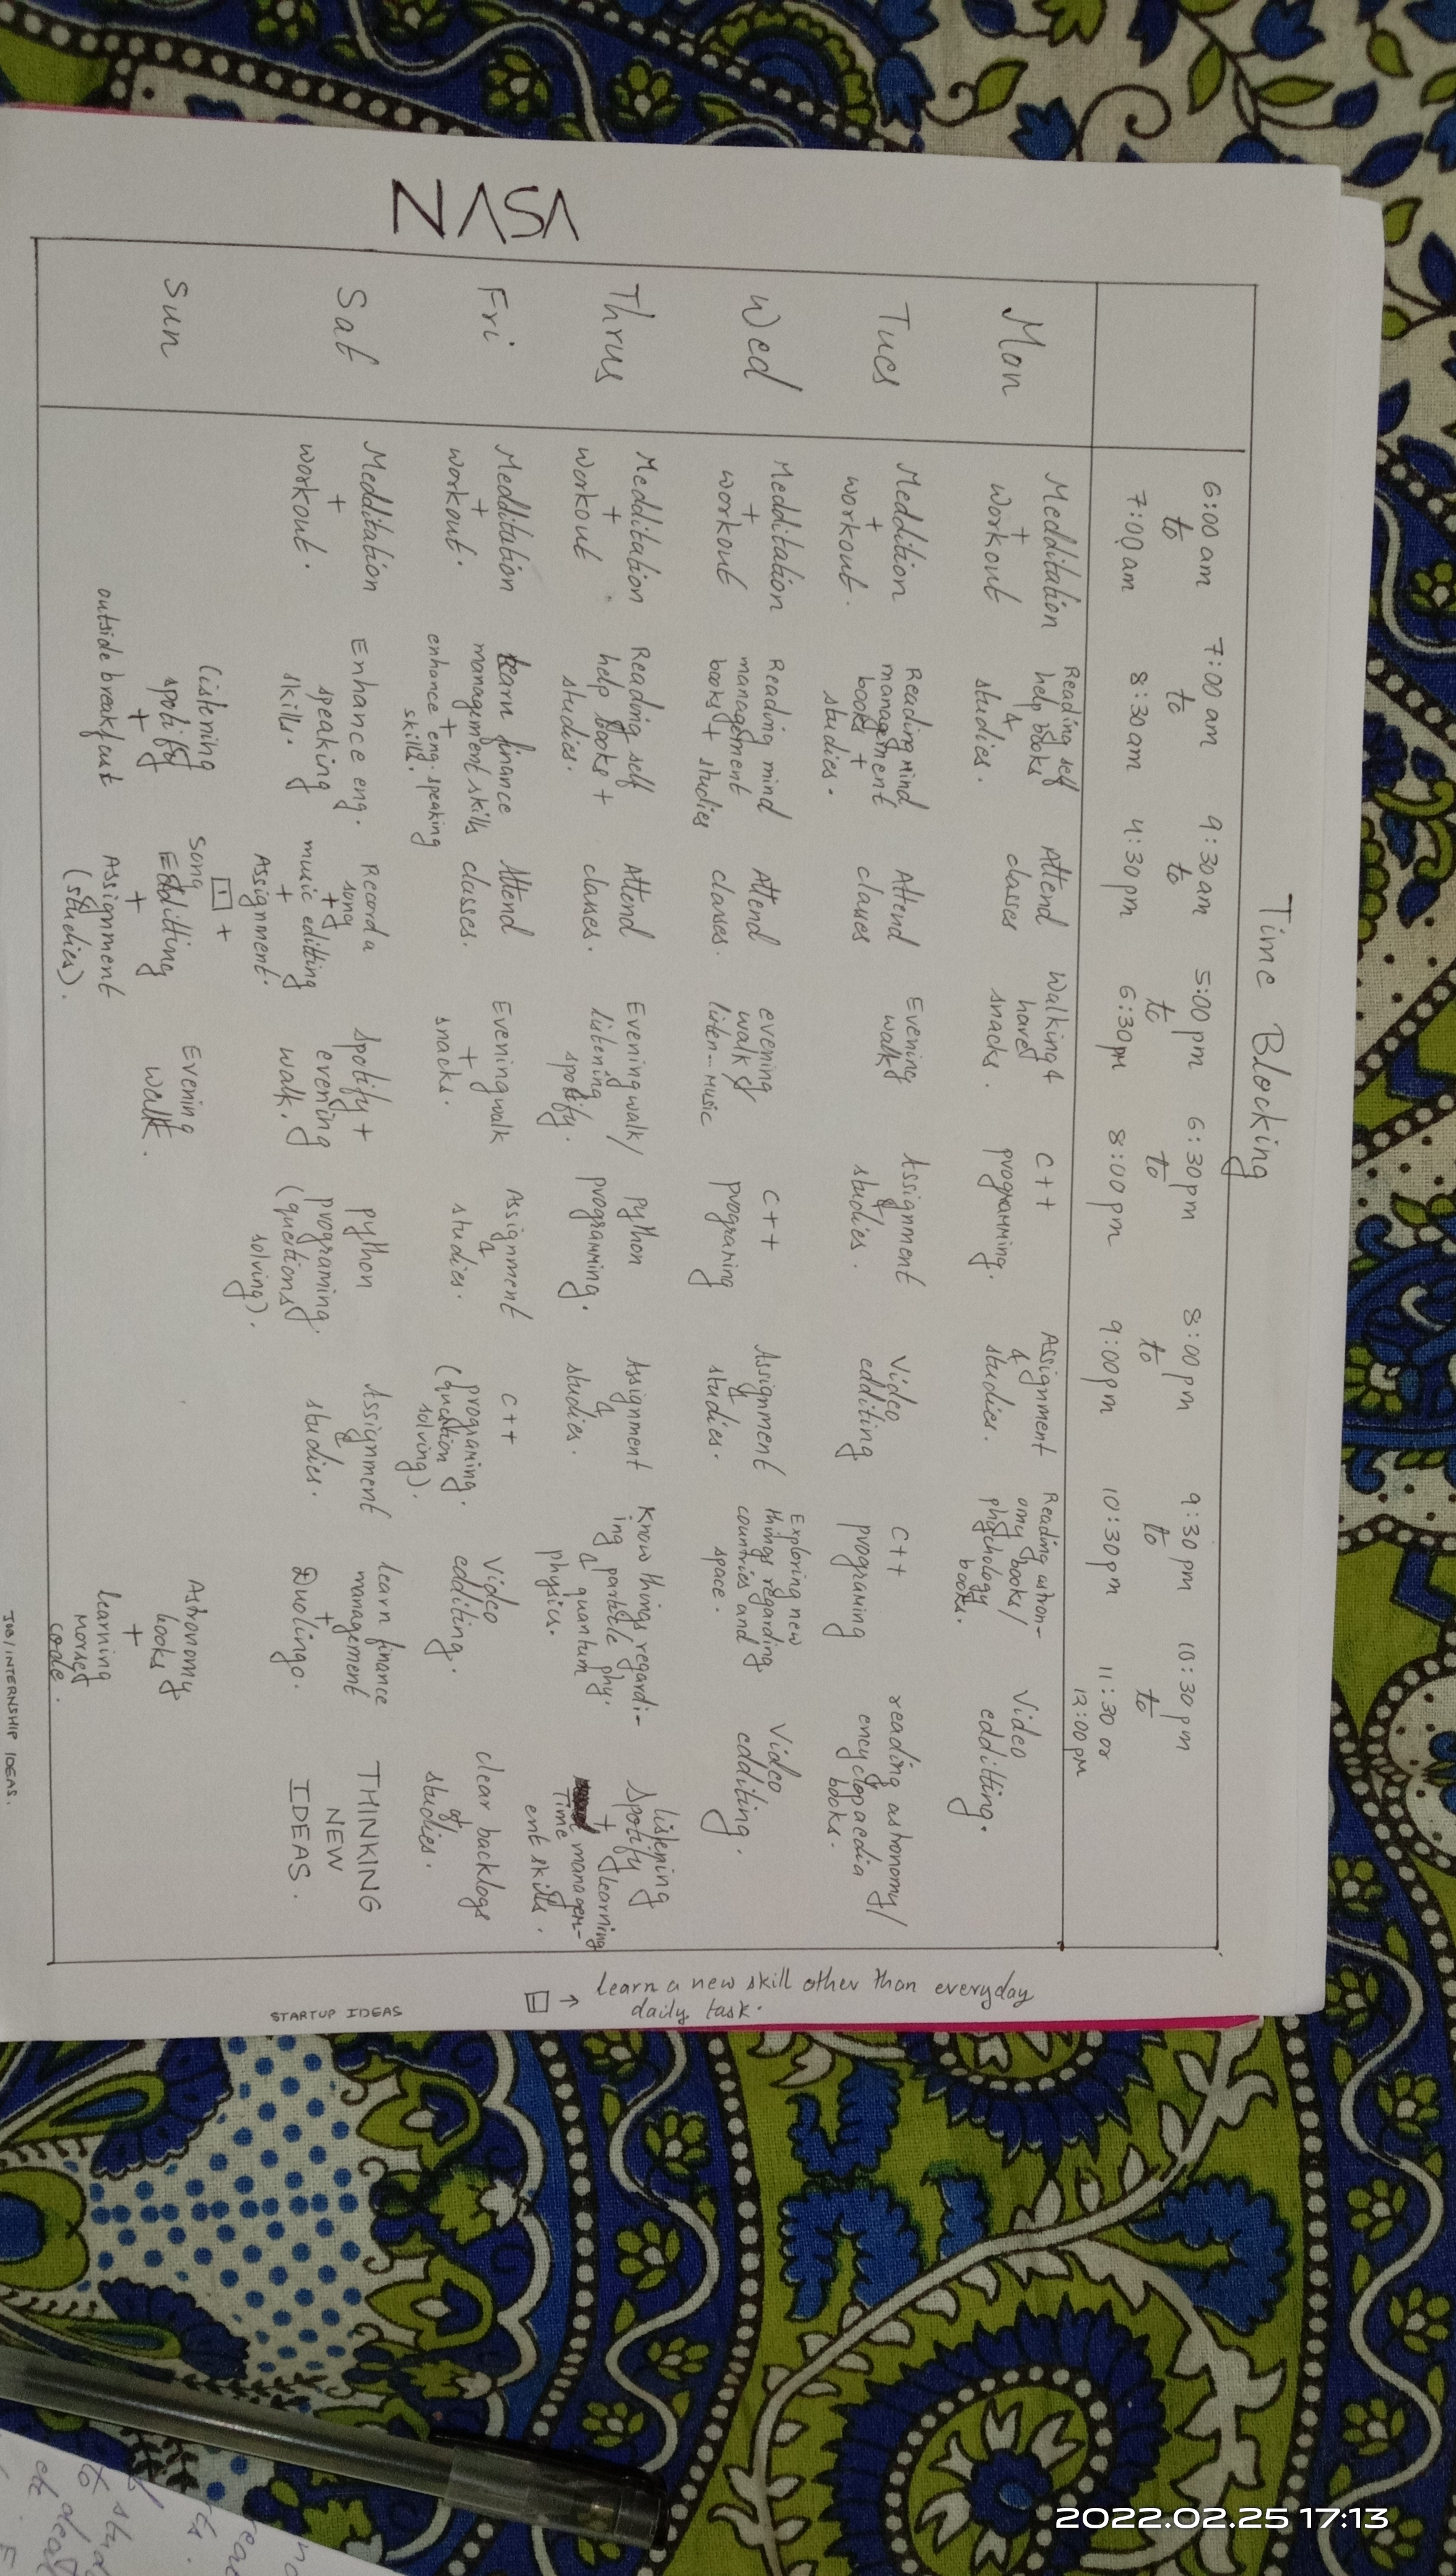 Time Blocking
6:00 am
to
7:00 am
7:00 am
to
8:30 am
9:30 am
to
4:30 pm
5:00 pm
to
6:30 pm
6:30 pm
to
8:00 pm
8:00 pm
to
9:00 pm
9:30 pm
to
10:30 pm
10:30 pm
to
11:30 or
12:00 pm
Mon
Medditation
+
workout
Reading self
help books
&
studies.
Attend
classes
Walking &
have
snacks.
C++
programming.
Assignment
&
studies.
Reading astron-
omy books/
phychology
books.
Video
edditting.
Tues
Meddition
+
workout.
Reading mind
management
books +
studies.
Attend
classes
Evening
walk
Assignment
&
studies.
Video
edditing
C++
programing
reading astronomy/
encyclopaedia
books.
Wed
Medditation
+
workout
Reading mind
management
books + studies
Attend
classes.
evening
walk &
listen--music
C++
programing
Assignment
&
studies.
Exploring new
things regarding
countries and
space.
Video
edditing.
Thrus
Medditation
+
workout
Reading self
help books +
studies.
Attend
classes.
Evening walk/
listening
spotify.
python
programming.
Assignment
&
studies.
Know things regardi-
ing particle phy.
& quantum
physics.
listening
spotify
+ learning
Time managem-
ent skills.
Fri
Medditation
+
workout.
learn finance
management skills
+
enhance eng. speaking
skills.
Attend
classes.
Evening walk
+
snacks.
Assignment
&
studies.
C++
programing.
(question
solving).
Video
edditing.
clear backlogs
of
studies.
Sat
Medditation
+
workout.
Enhance eng.
speaking
skills.
Record a
song
+
music editting
+
Assignment.
spotify +
evening
walk.
python
programing.
(questions
solving).
Assignment
&
studies.
learn finance
management
+
Duolingo.
THINKING
NEW
IDEAS.
Sun
listening
spotify
+
outside breakfast
+
song
Edditting
+
Assignment
(studies).
Evening
walk.
Astronomy
books
+
learning
morset
code.
NASA
→ learn a new skill other than everyday
daily task.
STARTUP IDEAS
JOB/INTERNSHIP IDEAS.
2022.02.25 17:13